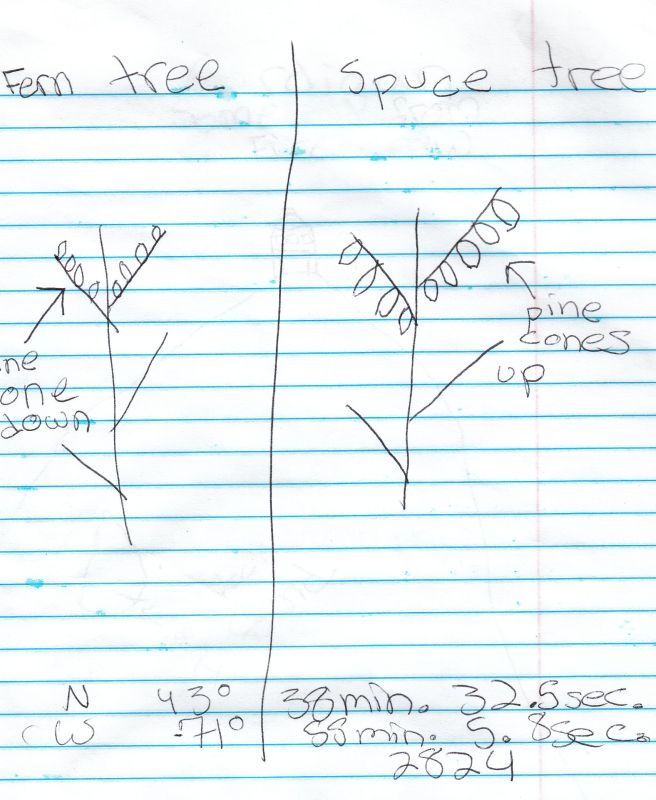 Fern tree
Spuce tree
ne
one
down
pine
cones
up
N 43° 38min. 32.5sec.
W -71° 58min. 5.8sec.
2824